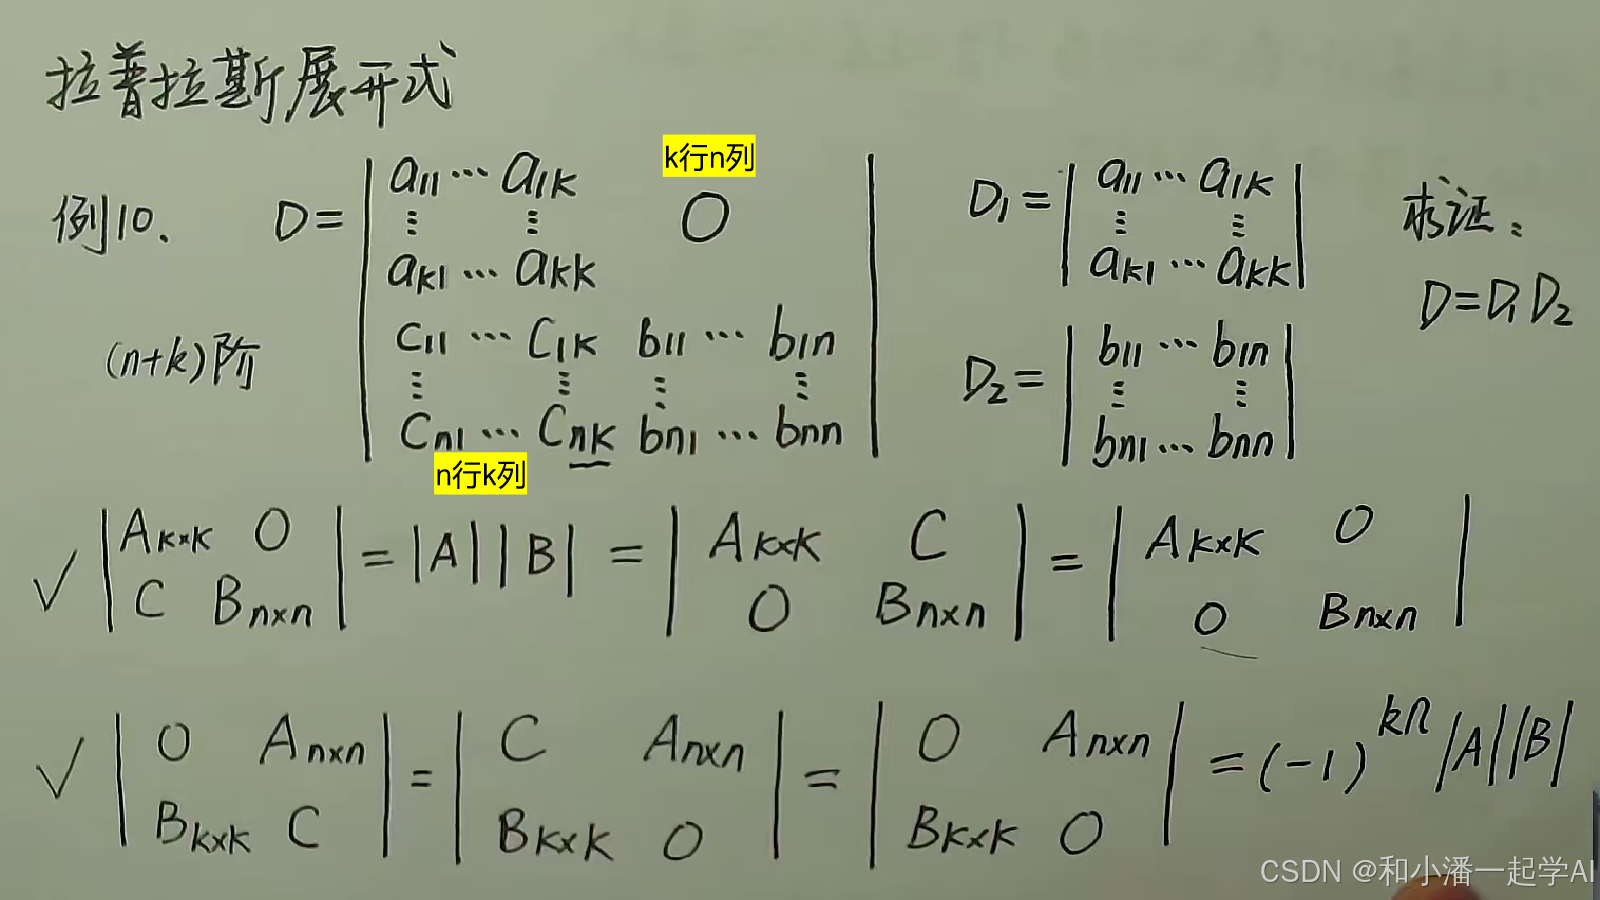 拉普拉斯展开式
例10.
(n+k)阶
D=
a11 ⋯ a1k
k行n列
⋮ ⋮ O
ak1 ⋯ akk
c11 ⋯ c1k b11 ⋯ b1n
⋮ ⋮ ⋮ ⋮
cn1 ⋯ cnk bn1 ⋯ bnn
n行k列
D1= | a11 ⋯ a1k
⋮ ⋮
ak1 ⋯ akk |
D2= | b11 ⋯ b1n
⋮ ⋮
bn1 ⋯ bnn |
求证:
D=D1D2
✓ | Ak×k O
C Bn×n | = |A||B| = | Ak×k C
O Bn×n | = | Ak×k O
O Bn×n |
✓ | O An×n
Bk×k C | = | C An×n
Bk×k O | = | O An×n
Bk×k O | = (-1)^kn |A||B|
CSDN @和小潘一起学AI